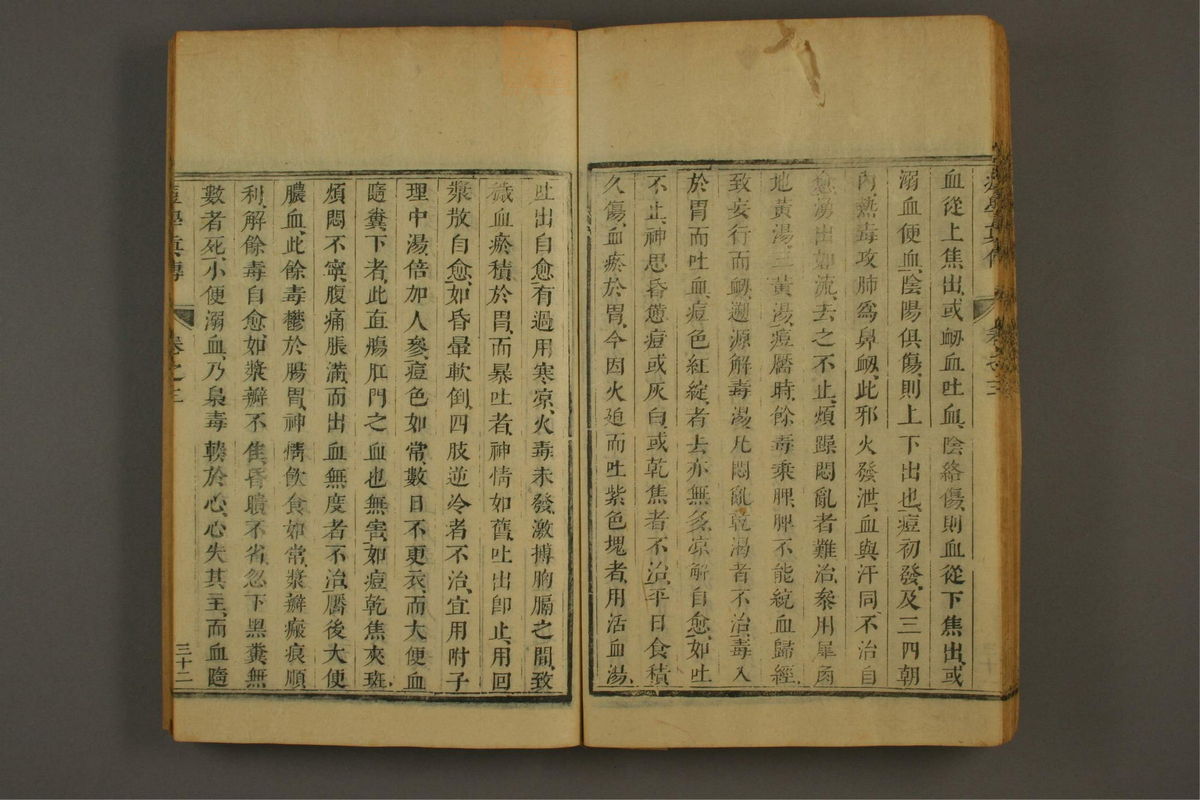 血從上焦出或衂血吐血陰絡傷則血從下焦出或
溺血便血陰陽俱傷則上下出也痘初發及三四朝
內熱毒攻肺爲鼻衂此邪火發泄血與汗同不治自
愈湧出如流去之不止煩躁悶亂者難治叅用犀角
地黃湯三黃湯痘靨時餘毒乘脾脾不能統血歸經
致妄行而衂遡源解毒湯凡悶亂乾渴者不治毒入
於胃而吐血痘色紅綻者去亦無多凉解自愈如吐
不止神思昏憊痘或灰白或乾焦者不治平日食積
久傷血瘀於胃今因火迫而吐紫色塊者用活血湯
吐出自愈有過用寒凉火毒未發激搏胸膈之間致
微血瘀積於胃而暴吐者神情如舊吐出卽止用回
漿散自愈如昏暈軟倒四肢逆冷者不治宜用附子
理中湯倍加人參痘色如常數日不更衣而大便血
隨糞下者此直腸肛門之血也無害如痘乾焦夾斑
煩悶不寧腹痛脹滿而出血無度者不治靨後大便
膿血此餘毒鬱於腸胃神情飲食如常漿瓣癜痕順
利解餘毒自愈如漿瓣不焦昏聵不省忽下黑糞無
數者死小便溺血乃梟毒轃於心心失其主而血隨
痘學眞傳 卷之三 三十二